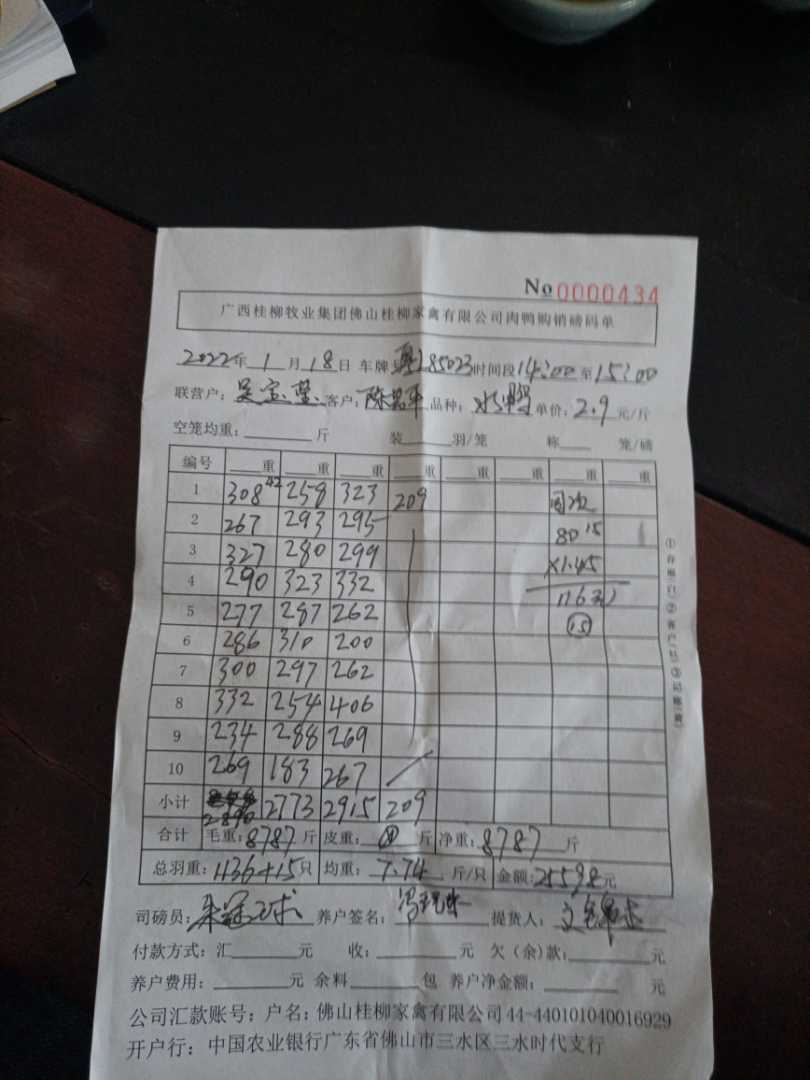 No 0000434
广西桂柳牧业集团佛山桂柳家禽有限公司肉鸭购销磅码单
2022年1月18日 车牌 85023 时间段14:00至15:00
联营户: 吴宝莹 客户: 陈昌平 品种: 水鸭 单价: 2.9 元/斤
空笼均重: 斤 装 羽/笼 称 笼/磅
编号 重 重 重 重 重 重 重 重
1 308 42 258 323 209
2 267 293 295 80 15
3 327 280 299 ×1.45
4 290 323 332 116
5 277 287 262 15
6 286 310 200
7 300 297 262
8 332 254 406
9 234 288 269
10 269 183 267
小计 2890 2773 2915 209
合计 毛重: 8787 斤 皮重: 斤 净重: 8787 斤
总羽重: 1136+15只 均重: 7.74 斤/只 金额: 25598元
司磅员: 养户签名: 提货人:
付款方式: 汇 元 收: 元 欠(余)款: 元
养户费用: 元 余料 包 养户净金额: 元
公司汇款账号: 户名: 佛山桂柳家禽有限公司 44-440101040016929
开户行: 中国农业银行广东省佛山市三水区三水时代支行